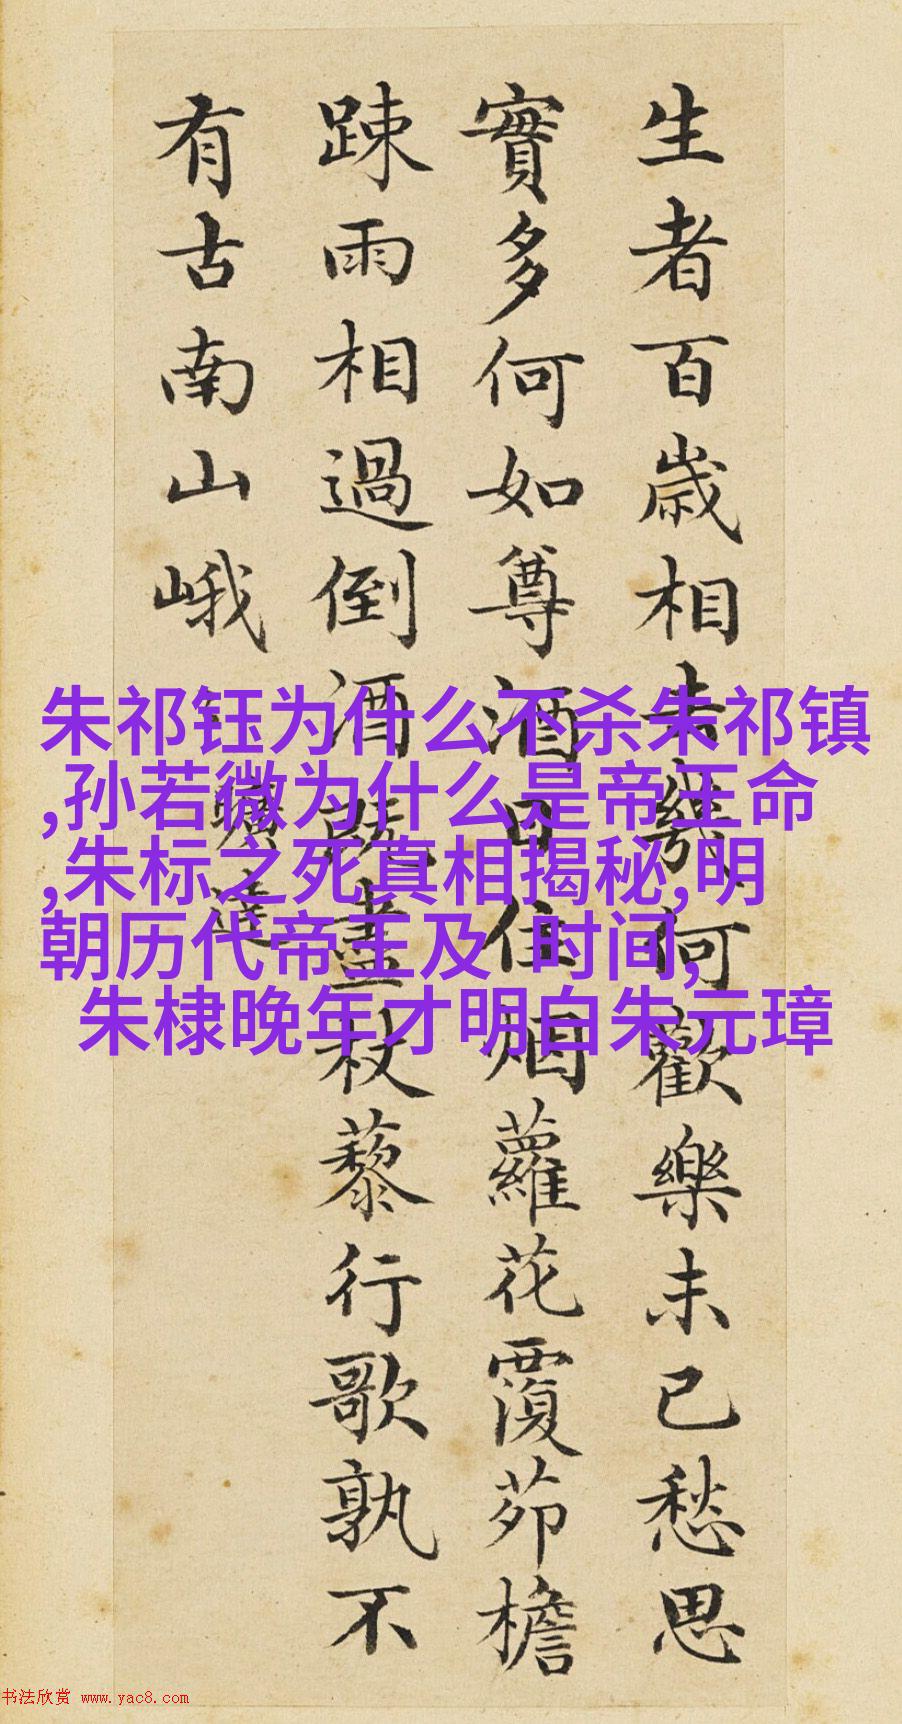 生者百歲相去幾何歡樂未已愁思
實多何如尊酒日往烟蘿花覆茆檐
踈雨相過倒酒既盡杖藜行歌孰不
有古南山峨
曠達
朱祁钰为什么不杀朱祁镇
,孙若微为什么是帝王命
,朱标之死真相揭秘,明
朝历代帝王及 时间,
朱棣晚年才明白朱元璋
书法欣赏 www.yac8.com